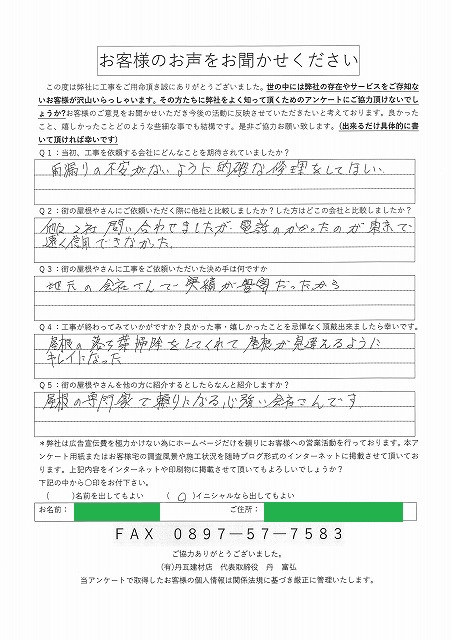 お客様のお声をお聞かせください
この度は弊社に工事をご用命頂き誠にありがとうございました。世の中には弊社の存在やサービスをご存知な
いお客様が沢山いらっしゃいます。その方たちに弊社をよく知って頂くためのアンケートにご協力頂けないでし
ょうか?お客様のご意見をお聞かせいただき今後の活動に反映させていただきたいと考えております。良かった
こと、嬉しかったことどのような些細な事でも結構です。是非ご協力お願い致します。(出来るだけ具体的に書
いて頂ければ幸いです)
Q1:当初、工事を依頼する会社にどんなことを期待されていましたか?
雨漏りの不安がないように的確な修理をしてほしい
Q2:街の屋根やさんにご依頼いただく際に他社と比較しましたか?した方はどこの会社と比較しましたか?
他に2社問い合わせましたが電話のかかったのが東京で
遠く信用できなかった。
Q3:街の屋根やさんに工事をご依頼いただいた決め手は何ですか
地元の会社さんで実績が豊富だったから
Q4:工事が終わってみていかがですか?良かった事・嬉しかったことを忌憚なく頂戴出来ましたら幸いです。
屋根の落ち葉掃除をしてくれて屋根が見違えるように
キレイになった
Q5:街の屋根やさんを他の方に紹介するとしたらなんと紹介しますか?
屋根の専門家で頼りになる心強い会社さんです
*弊社は広告宣伝費を極力かけない為にホームページだけを頼りにお客様への営業活動を行っております。本ア
ンケート用紙またはお客様宅の調査風景や施工状況を随時ブログ形式のインターネットに掲載させて頂いてお
ります。上記内容をインターネットや印刷物に掲載させて頂いてもよろしいでしょうか?
下記の中から〇印をお付け下さい。
( )名前を出してもよい (〇)イニシャルなら出してもよい
お名前: ご住所:
FAX 0897-57-7583
ご協力ありがとうございました。
(有)丹瓦建材店 代表取締役 丹 富弘
当アンケートで取得したお客様の個人情報は関係法規に基づき厳正に管理いたします。